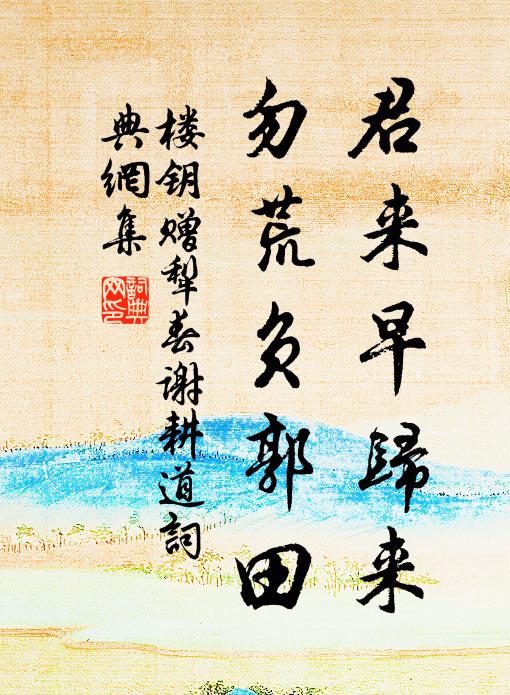 君来早歸来
勿荒负郭田
楼钥赠犁春谢耕道詞
典網集
詞典
网印